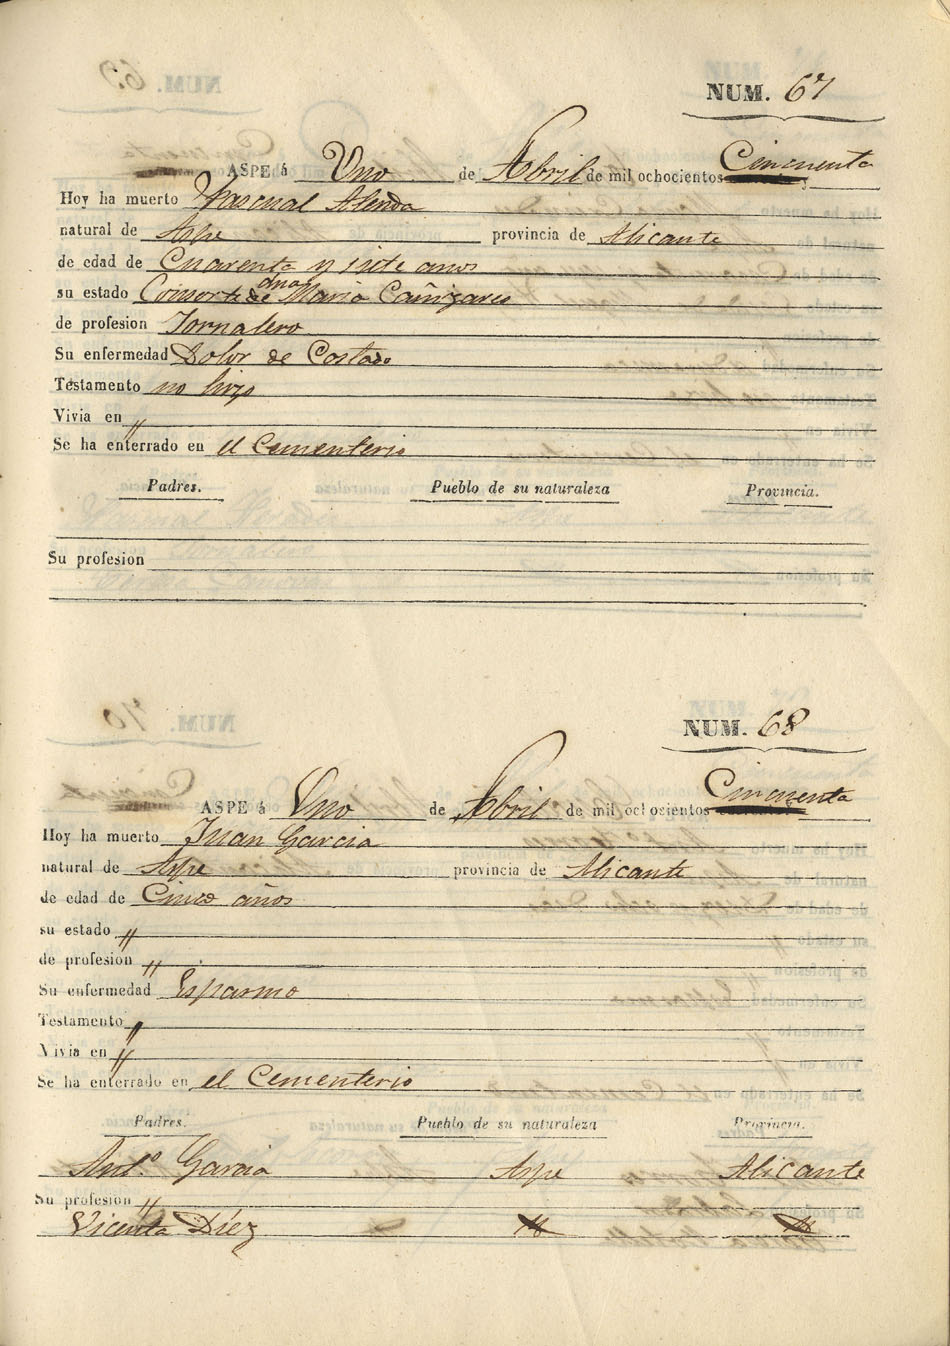 NUM. 67
ASPE á Uno de Abril de mil ochocientos Cincuenta
Hoy ha muerto Pascual Alenda
natural de Aspe provincia de Alicante
de edad de Cuarenta y siete años
su estado Consorte de Maria Cañizares
de profesion Jornalero
Su enfermedad Dolor de Costado
Testamento no hizo
Vivia en "
Se ha enterrado en el Cementerio
Padres. Pueblo de su naturaleza Provincia.
Su profesion
NUM. 68
ASPE á Uno de Abril de mil ochosientos Cincuenta
Hoy ha muerto Juan Garcia
natural de Aspe provincia de Alicante
de edad de Cinco años
su estado "
de profesion "
Su enfermedad Espasmo
Testamento "
Vivia en "
Se ha enterrado en el Cementerio
Padres. Pueblo de su naturaleza Provincia.
Ant.º Garcia Aspe Alicante
Su profesion "
Vicenta Díez